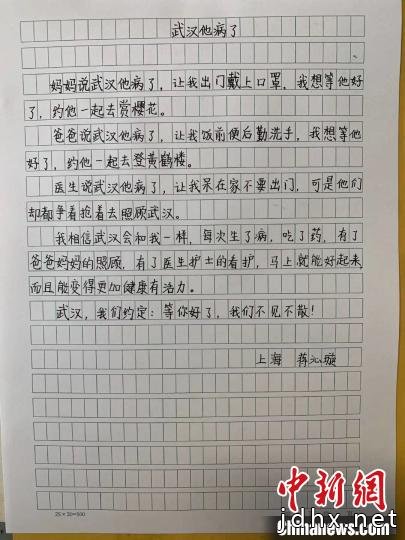 武汉他病了
妈妈说武汉他病了，让我出门戴上口罩，我想等他好
了，约他一起去赏樱花。
爸爸说武汉他病了，让我饭前便后勤洗手，我想等他
好了，约他一起去登黄鹤楼。
医生说武汉他病了，让我呆在家不要出门，可是他们
却都争着抢着去照顾武汉。
我相信武汉会和我一样，每次生了病，吃了药，有了
爸爸妈妈的照顾，有了医生护士的看护，马上就能好起来，
而且能变得更加健康有活力。
武汉，我们约定：等你好了，我们不见不散！
上海 蒋沁璇
25×20=500
中新網
jdhx.net
Chinanews.com